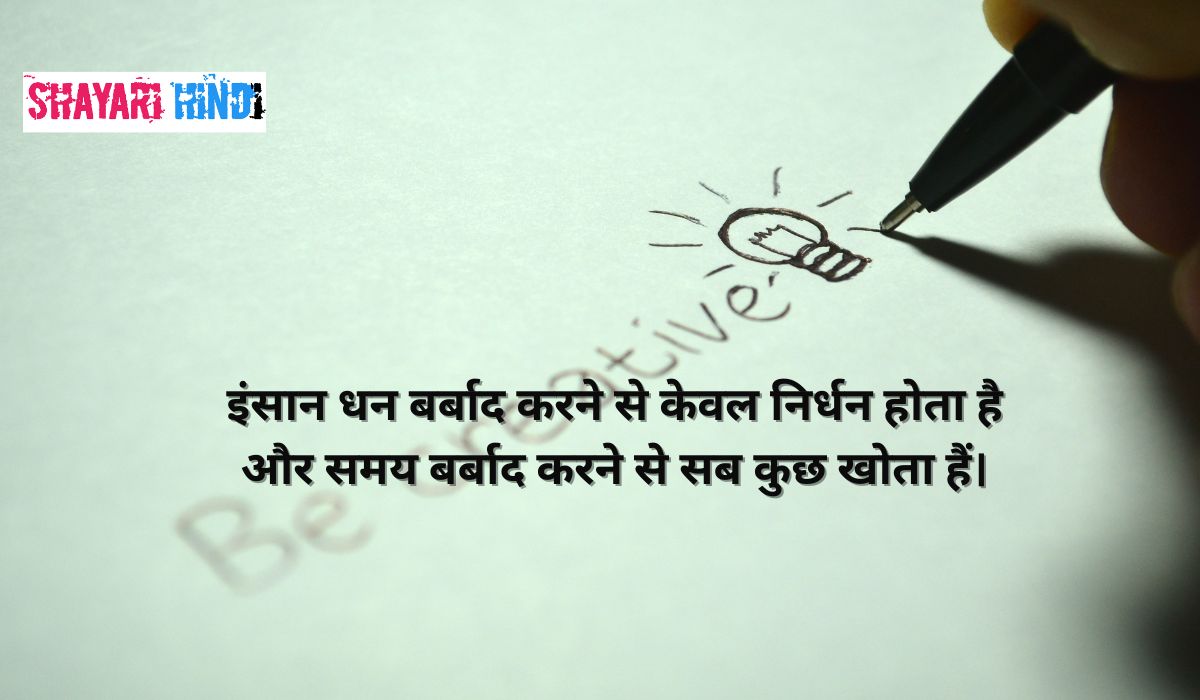 SHAYARI HINDI
Be creative
इंसान धन बर्बाद करने से केवल निर्धन होता है
और समय बर्बाद करने से सब कुछ खोता हैं।